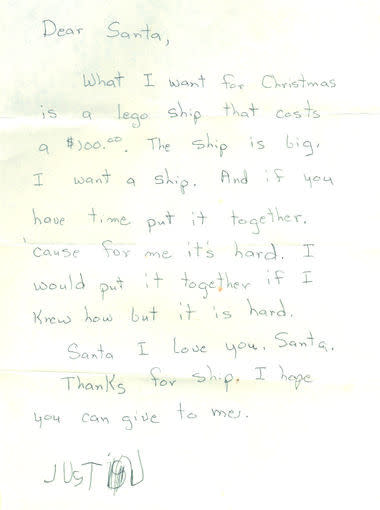 Dear Santa,
What I want for Christmas
is a lego ship that costs
a $100.00. The ship is big.
I want a ship. And if you
have time put it together.
'cause for me it's hard. I
would put it together if I
knew how but it is hard.
Santa I love you. Santa.
Thanks for ship. I hope
you can give to me.
JUSTIN